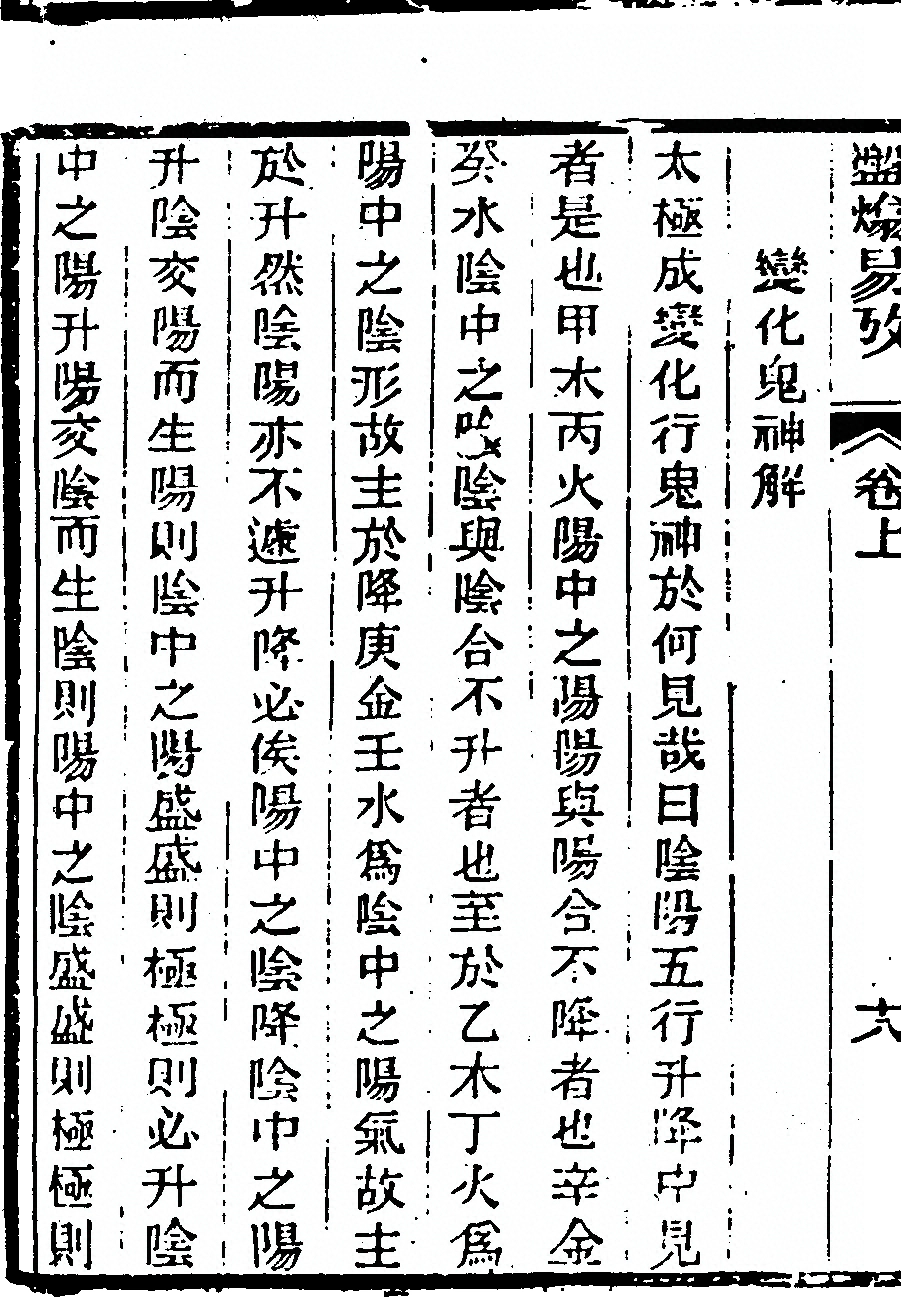 盤易攷
卷上
十八
變化鬼神解
太極成變化行鬼神於何見哉曰陰陽五行升降中見
者是也甲木丙火陽中之陽陽與陽合不降者也辛金
癸水陰中之陰陰與陰合不升者也至於乙木丁火爲
陽中之陰形故主於降庚金壬水爲陰中之陽氣故主
於升然陰陽亦不遽升降必俟陽中之陰降陰中之陽
升陰交陽而生陽則陰中之陽盛盛則極極則必升陰
中之陽升陽交陰而生陰則陽中之陰盛盛則極極則